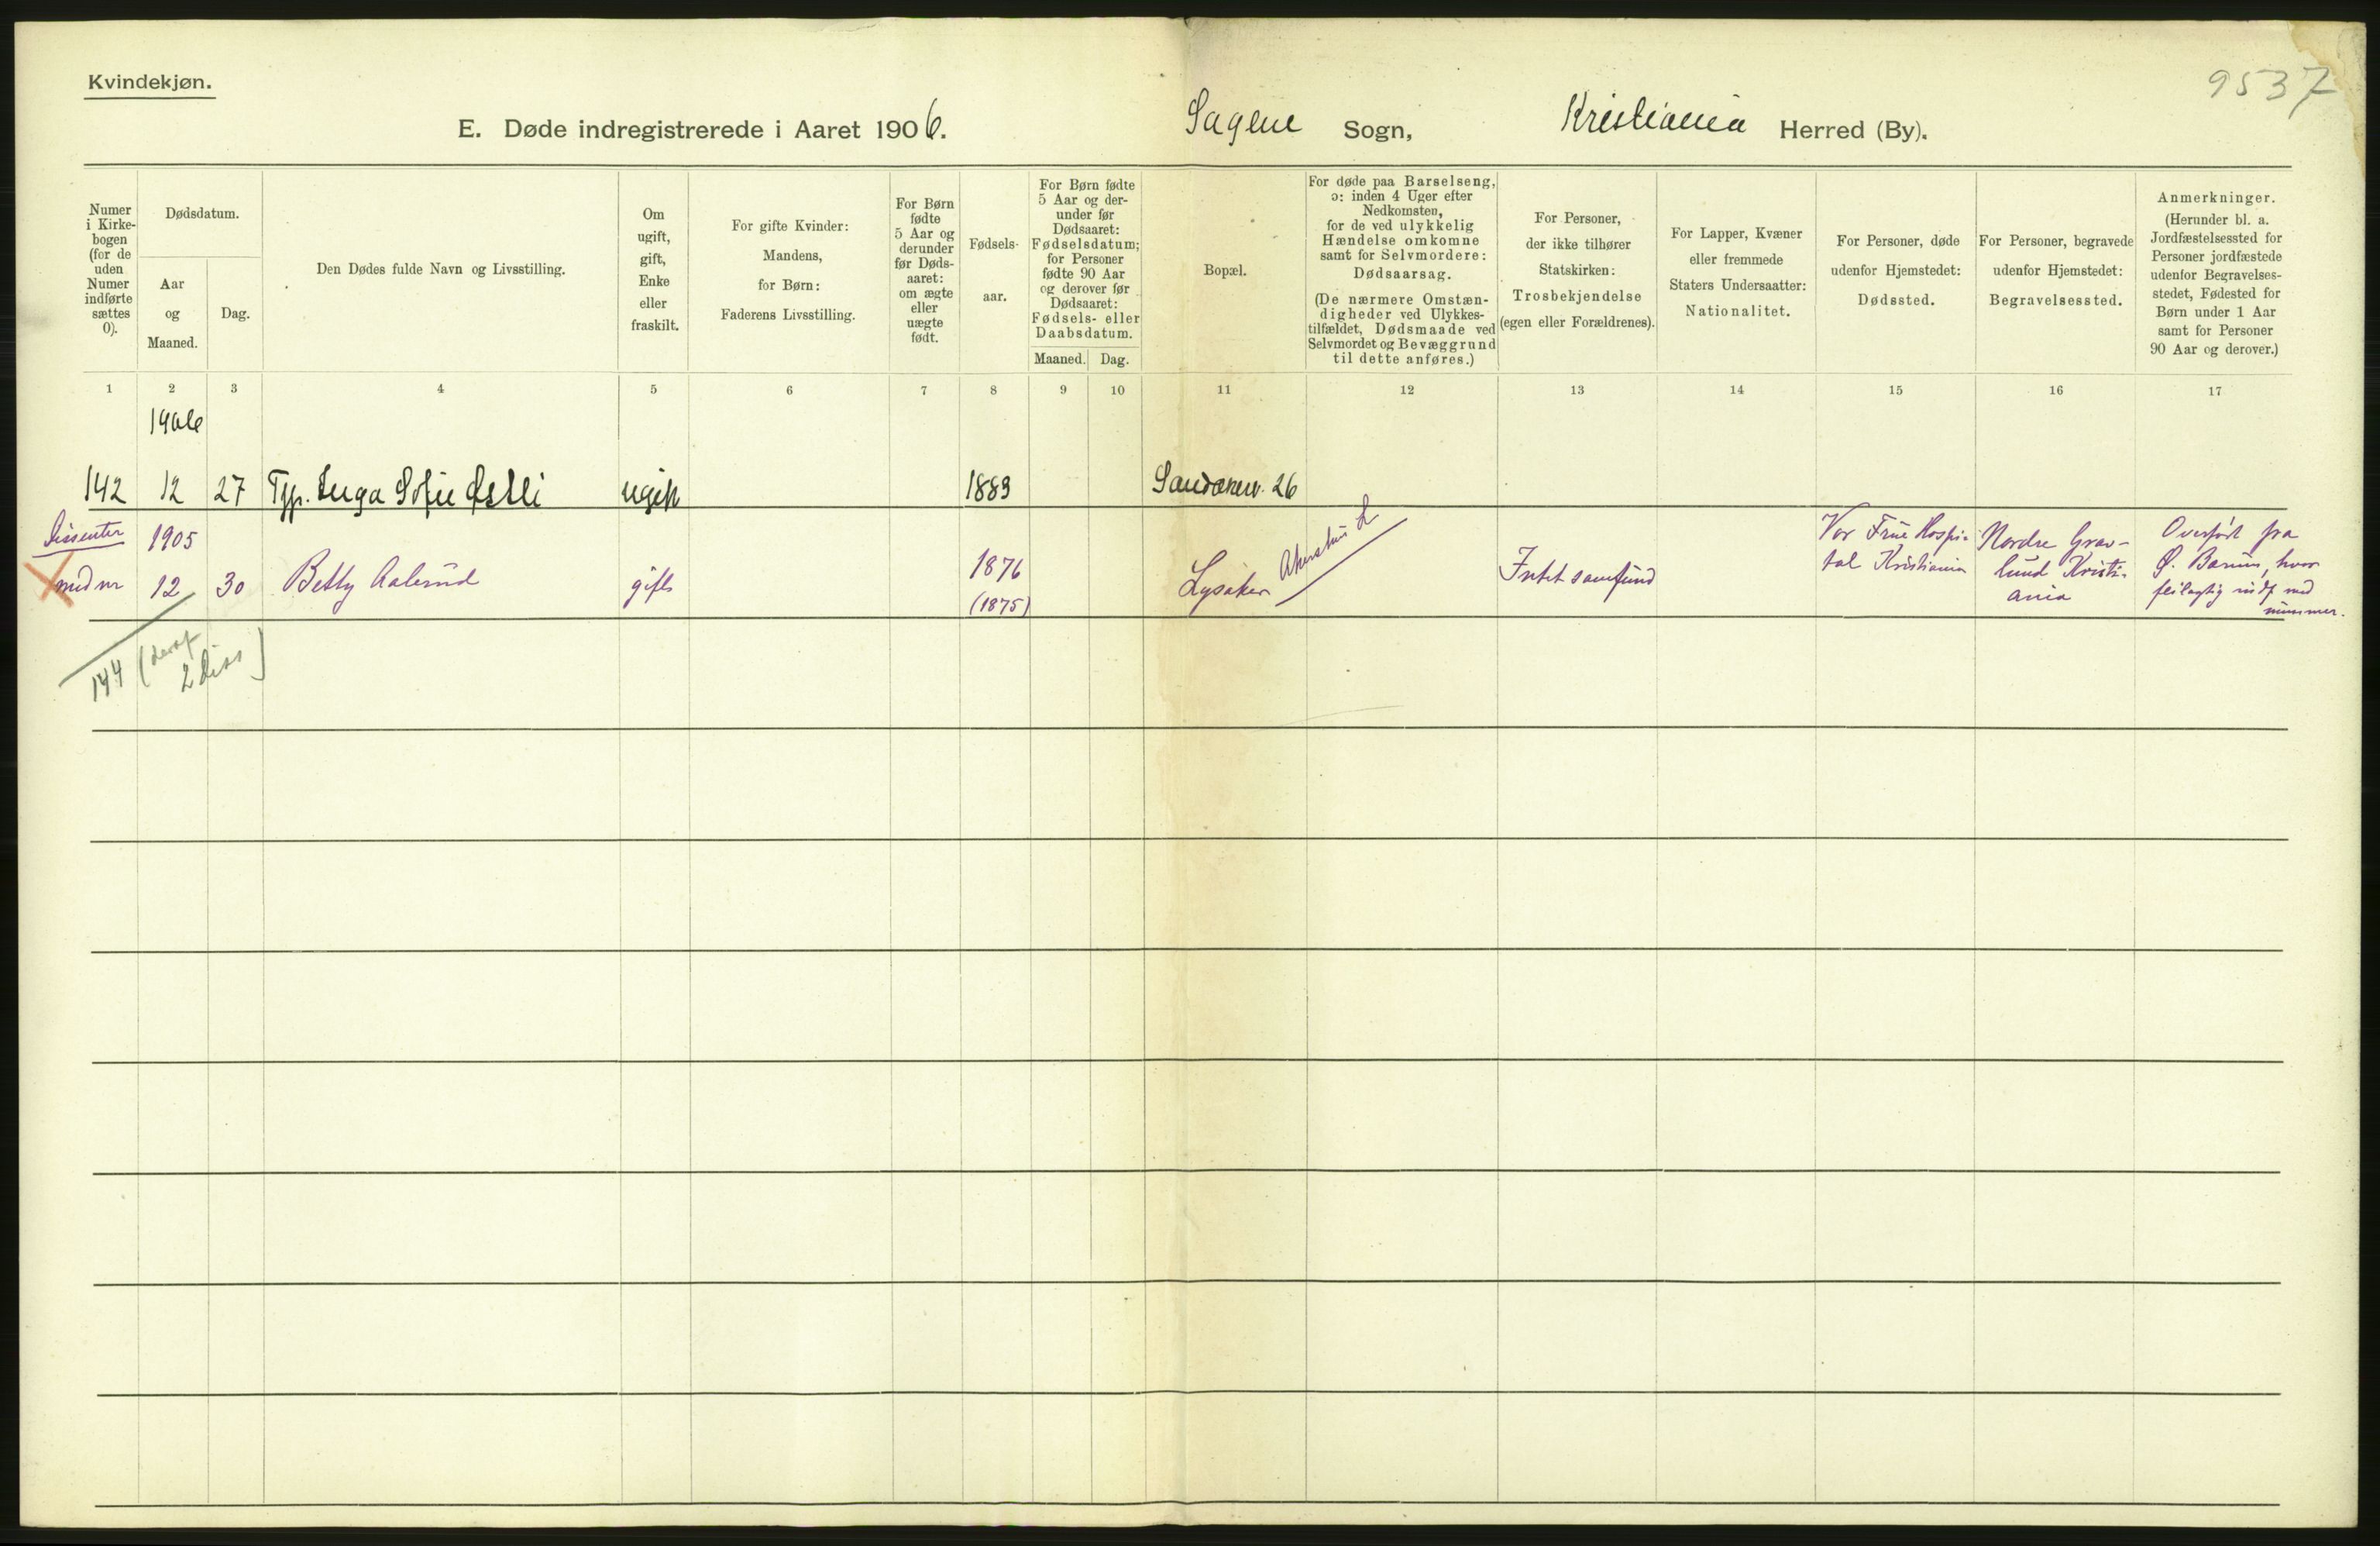 Kvindekjøn.
9537
E. Døde indregistrerede i Aaret 1906. Sagene Sogn, Kristiania Herred (By).
Numer i Kirke-bogen (for de uden Numer indførte sættes 0).
Dødsdatum.
Aar og Maaned.
Dag.
Den Dødes fulde Navn og Livsstilling.
Om ugift, gift, Enke eller fraskilt.
For gifte Kvinder: Mandens, for Børn: Faderens Livsstilling.
For Børn fødte 5 Aar og derunder før Døds-aaret: om ægte eller uægte født.
Fødsels-aar.
For Børn fødte 5 Aar og der-under før Dødsaaret: Fødselsdatum; for Personer fødte 90 Aar og derover før Dødsaaret: Fødsels- eller Daabsdatum.
Maaned. Dag.
Bopæl.
For døde paa Barselseng, ɔ: inden 4 Uger efter Nedkomsten, for de ved ulykkelig Hændelse omkomne samt for Selvmordere: Dødsaarsag.
(De nærmere Omstæn-digheder ved Ulykkes-tilfældet, Dødsmaade ved Selvmordet og Bevæggrund til dette anføres.)
For Personer, der ikke tilhører Statskirken: Trosbekjendelse (egen eller Forældrenes).
For Lapper, Kvæner eller fremmede Staters Undersaatter: Nationalitet.
For Personer, døde udenfor Hjemstedet: Dødssted.
For Personer, begravede udenfor Hjemstedet: Begravelsessted.
Anmerkninger. (Herunder bl. a. Jordfæstelsessted for Personer jordfæstede udenfor Begravelses-stedet, Fødested for Børn under 1 Aar samt for Personer 90 Aar og derover.)
1 2 3 4 5 6 7 8 9 10 11 12 13 14 15 16 17
1906
142 12 27 Typ. Inga Sofie Østli ugift 1889 Sandakerv. 26
Dissenter 1905
med nr 12 30 Betty Aalerud gift 1876 (1875) Lysaker Akershus Intet samfund
Vor Frue Hospi-
tal Kristiania
Nordre Grav-
lund Kristi-
ania
Overført fra
Ø. Bærum, hvor
feilagtig indf med
nummer.
144 (deraf
2 diss)